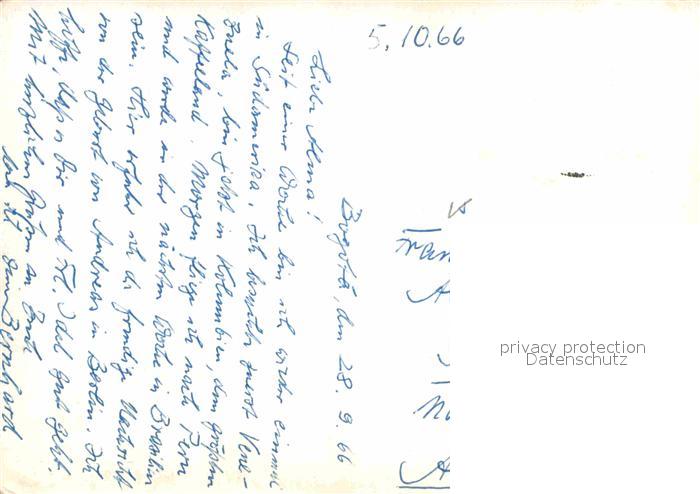 5. 10.66
Bogotá, den 28. 9. 66
Liebe Alma!
Seit einer Woche bin ich wieder einmal
in Südamerika, ich besuchte zuerst Vene-
zuela, bin jetzt in Kolumbien, dem größten
Kaffeeland. Morgen fliege ich nach Peru
und werde in der nächsten Woche in Brasilien
sein. Hier erfuhr ich die freudige Nachricht
von der Geburt von Andreas in Berlin. Ich
hoffe, dass es Dir und Frl. Idel gut geht.
Mit herzlichen Grüßen an Euch
bin ich Dein Bernhard
Frau
privacy protection
Datenschutz